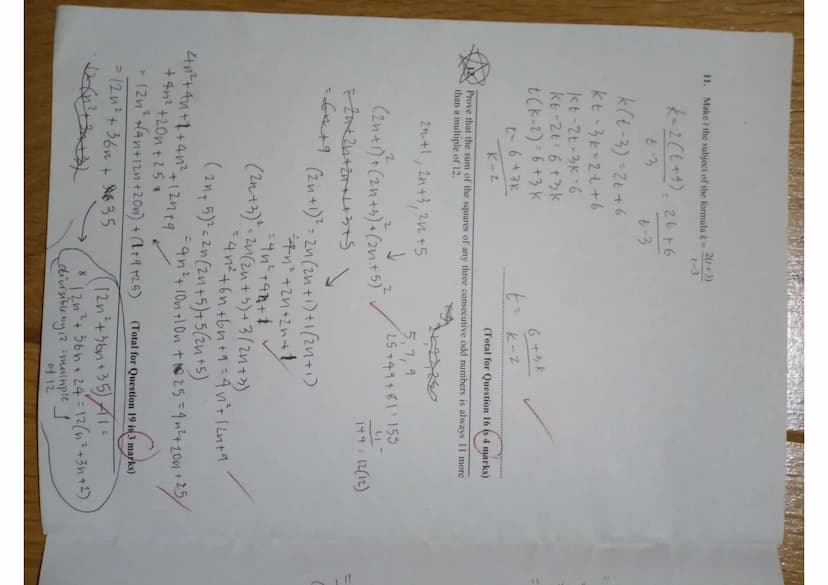 11. Make t the subject of the formula k = 2(t+3)/t−3
k = 2(t+3)/t-3 = 2t+6/t-3
k(t-3) = 2t+6
kt-3k = 2t+6
kt-2t-3k=6
kt-2t=6+3k
t(k-2)=6+3k
t=6+3k/k-2
t= 6+3k/k-2
(Total for Question 16 is 4 marks)
12. Prove that the sum of the squares of any three consecutive odd numbers is always 11 more
than a multiple of 12.
2n+1, 2n+3, 2n+5
5, 7, 9
25+49+81=155
11 -
144 = 12(12)
(2n+1)²+(2n+3)²+(2n+5)²
= 2n+2n+2n+1+3+5
= 6n+9
(2n+1)² = 2n(2n+1)+1(2n+1)
= 4n²+2n+2n+1
= 4n²+4n+1
(2n+3)² = 2n(2n+3)+3(2n+3)
= 4n²+6n+6n+9 = 4n²+12n+9
(2n+5)² = 2n(2n+5)+5(2n+5)
= 4n²+10n+10n+25 = 4n²+20n+25
4n²+4n+1+4n²+12n+9
+4n²+20n+25
= 12n²+(4n+12n+20n)+(1+9+25)
(Total for Question 19 is 3 marks)
= 12n²+36n+35
(12n²+36n+35)-11=
12n²+36n+24=12(n²+3n+2)
divisible by 12 = multiple
of 12